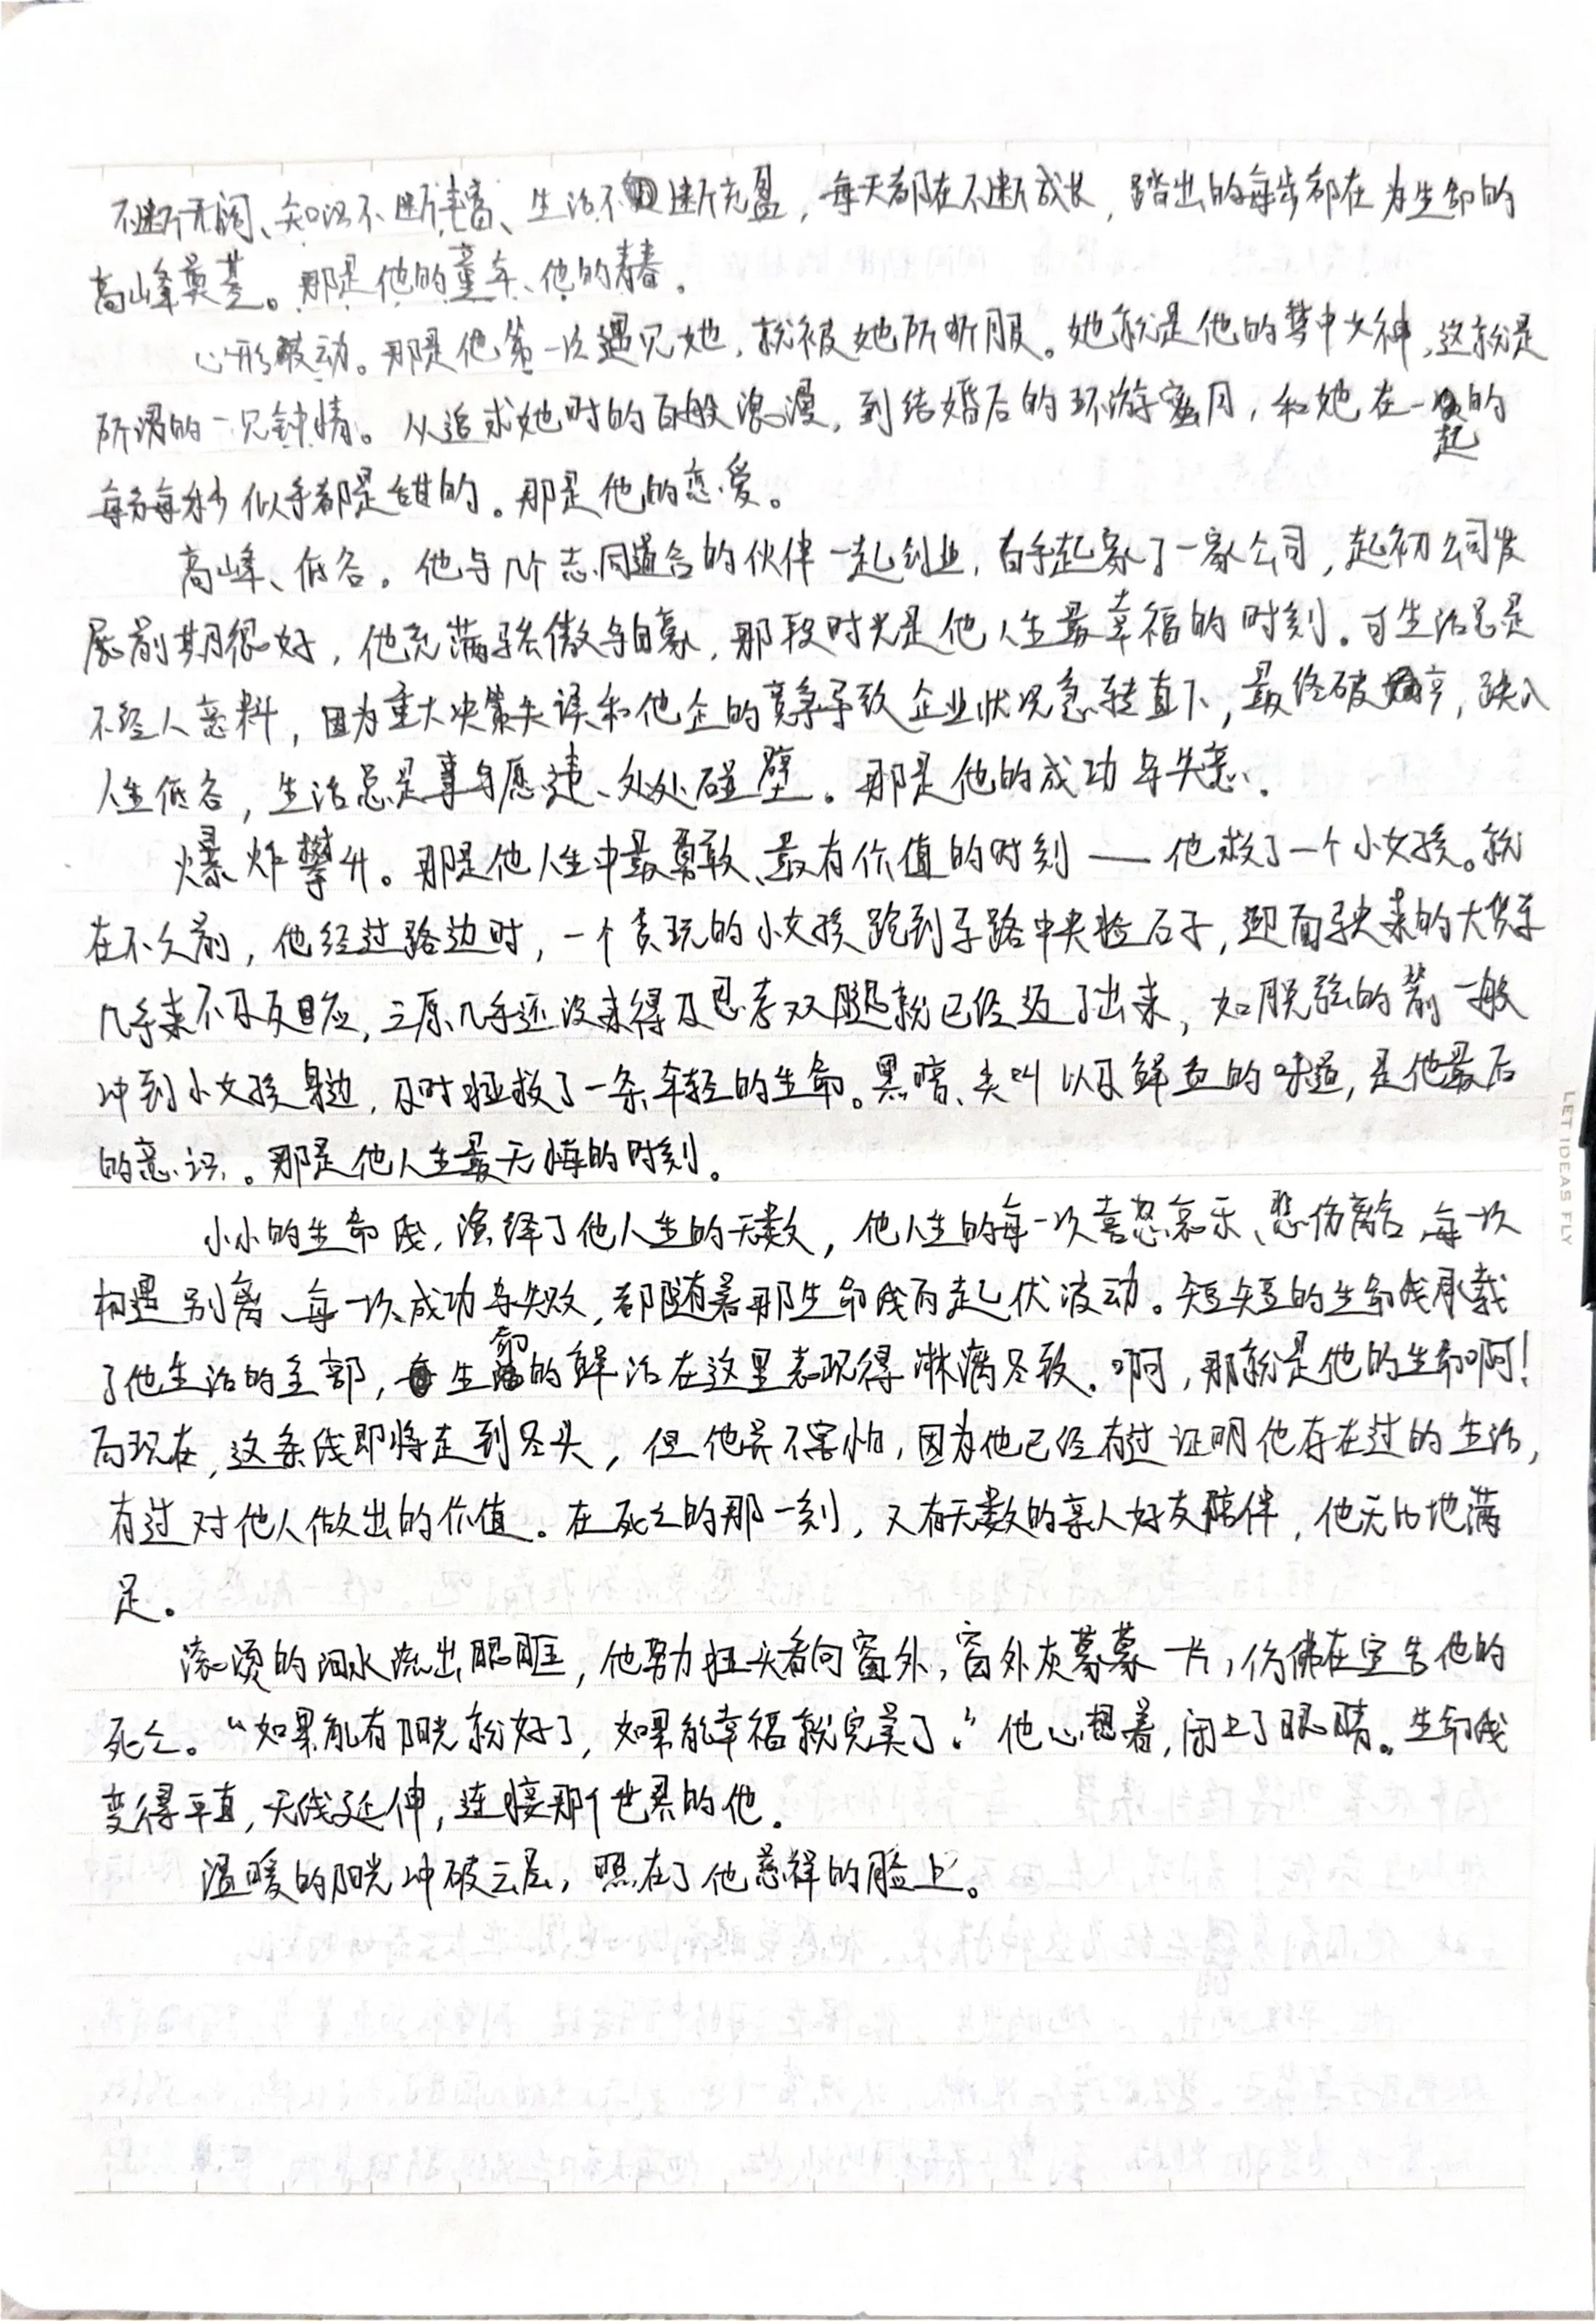 不断开阔、知识不断丰富、生活不断充盈，每天都在不断成长，踏出的每步都在为生命的
高山峰奠基。那是他的童年、他的青春。
心形波动。那是他第一次遇见她，就被她所折服。她就是他的梦中女神，这就是
所谓的一见钟情。从追求她时的百般浪漫，到结婚后的环游蜜月，和她在一起的
每分每秒似乎都是甜的。那是他的恋爱。
高峰、低谷。他与几个志同道合的伙伴一起创业，白手起家了一家公司，起初公司发
展前期很好，他充满骄傲与自豪，那段时光是他人生最幸福的时刻。可生活总是
不经人意料，因为重大决策失误和他企的竞争导致企业状况急转直下，最终破产，跌入
人生低谷，生活总是事与愿违、处处碰壁。那是他的成功与失意。
爆炸攀升。那是他人生中最勇敢、最有价值的时刻——他救了一个小女孩。就
在不久前，他经过路边时，一个贪玩的小女孩跑到车路中央捡石子，迎面驶来的大货车
几乎来不及反应，几乎还没来得及思考双腿就已经迈了出来，如脱弦的箭一般
冲到小女孩身边，及时拯救了一条年轻的生命。黑暗、尖叫以及鲜血的味道，是他最后
的意识。那是他人生最无悔的时刻。
小小的生命线，演绎了他人生的无数，他人生的每一次喜怒哀乐、悲伤离合，每一次
相遇别离、每一次成功与失败，都随着那生命线而起伏波动。短短的生命线承载
了他生活的全部，生命的鲜活在这里表现得淋漓尽致。啊，那就是他的生命啊！
而现在，这条线即将走到尽头，但他并不害怕，因为他已经有过证明他存在过的生活，
有过对他人做出的价值。在死亡的那一刻，又有无数的亲人好友陪伴，他无比地满
足。
滚烫的泪水流出眼眶，他努力扭头看向窗外，窗外灰蒙蒙一片，仿佛在宣告他的
死亡。“如果能有阳光就好了，如果能幸福就完美了。”他心想着，闭上了眼睛。生命线
变得平直，无线延伸，连接那个世界的他。
温暖的阳光冲破云层，照在了他慈祥的脸上。
LET IDEAS FLY